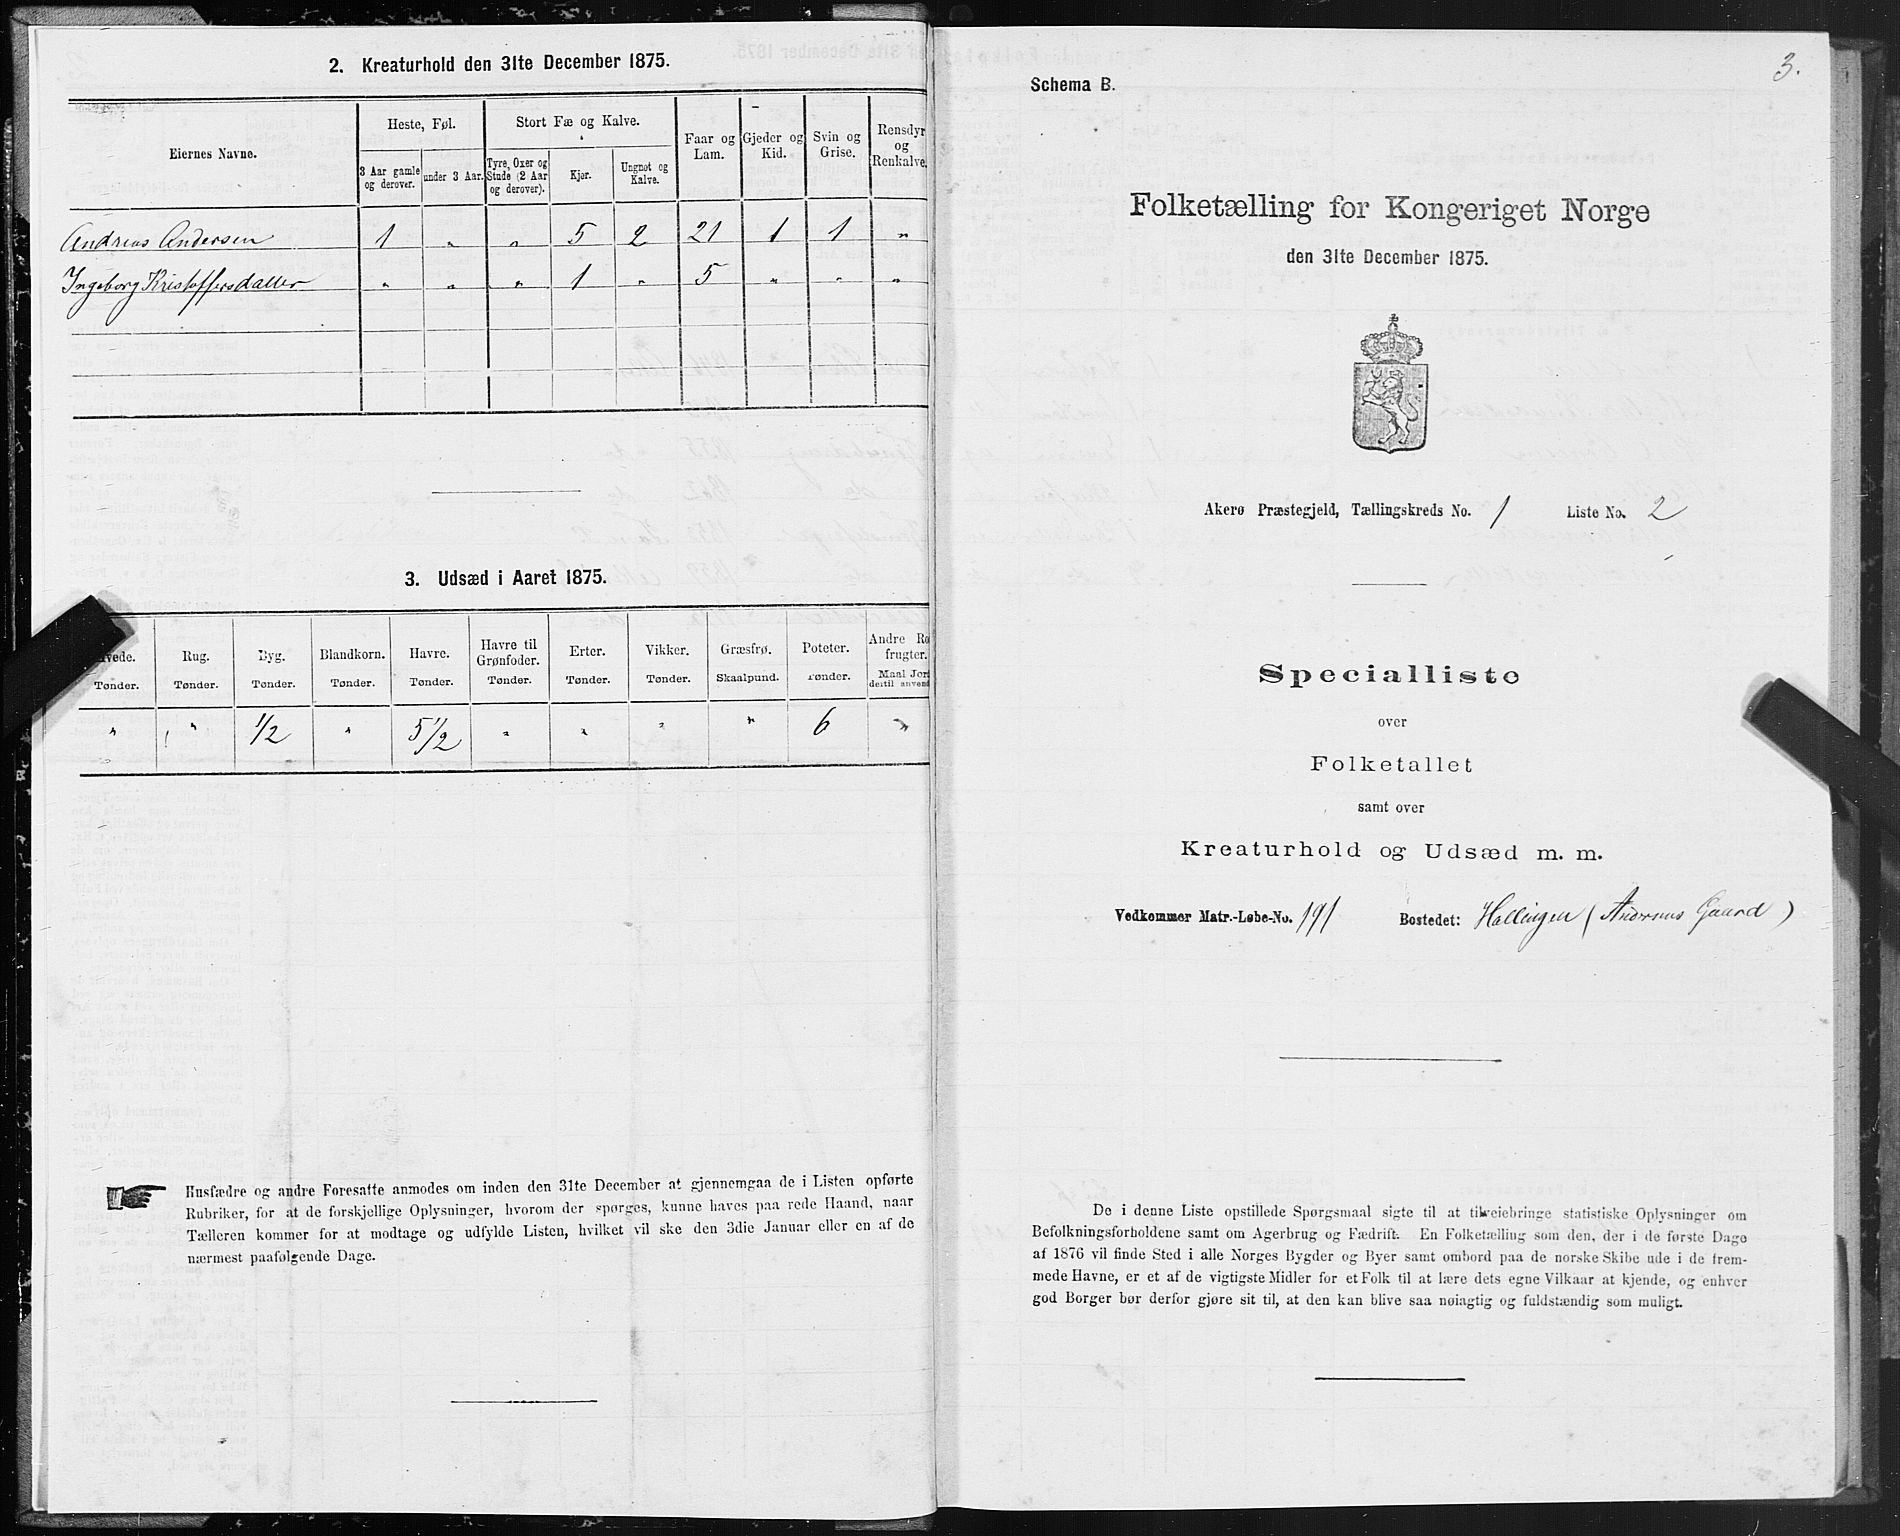 2. Kreaturhold den 31te December 1875.
Eiernes Navne.
Heste, Føl.
Stort Fæ og Kalve.
Faar og Lam.
Gjeder og Kid.
Svin og Grise.
Rensdyr og Renkalve.
3 Aar gamle og derover.
under 3 Aar.
Tyre, Oxer og Stude (2 Aar og derover).
Kjør.
Ungnøt og Kalve.
Andreas Andersen 1 " " 5 2 21 1 1 "
Ingeborg Kristoffersdatter " " " 1 " 5 " " "
3. Udsæd i Aaret 1875.
Rug. Byg. Blandkorn. Havre. Havre til Grønfoder. Erter. Vikker. Græsfrø. Poteter. Andre Ro
frugter.
Tønder. Tønder. Tønder. Tønder. Tønder. Tønder. Tønder. Tønder. Skaalpund. Tønder. Maal Jord
dertil anvend
" " 1/2 " 5 1/2 " " " " 6 "
Husfædre og andre Foresatte anmodes om inden den 31te December at gjennemgaa de i Listen opførte
Rubriker, for at de forskjellige Oplysninger, hvorom der spørges, kunne haves paa rede Haand, naar
Tælleren kommer for at modtage og udfylde Listen, hvilket vil ske den 3die Januar eller en af de
nærmest paafølgende Dage.
3.
Schema B.
Folketælling for Kongeriget Norge
den 31te December 1875.
Akerø Præstegjeld, Tællingskreds No. 1 Liste No. 2
Specialliste
over
Folketallet
samt over
Kreaturhold og Udsæd m. m.
Vedkommer Matr.-Løbe-No. 191 Bostedet: Hallingen (Andreas Gaard)
De i denne Liste opstillede Spørgsmaal sigte til at tilveiebringe statistiske Oplysninger om
Befolkningsforholdene samt om Agerbrug og Fædrift. En Folketælling som den, der i de første Dage
af 1876 vil finde Sted i alle Norges Bygder og Byer samt ombord paa de norske Skibe ude i de frem-
mede Havne, er et af de vigtigste Midler for et Folk til at lære dets egne Vilkaar at kjende, og enhver
god Borger bør derfor gjøre sit til, at den kan blive saa nøiagtig og fuldstændig som muligt.